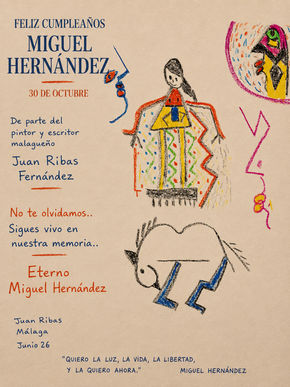 FELIZ CUMPLEAÑOS
MIGUEL
HERNÁNDEZ
30 DE OCTUBRE
De parte del
pintor y escritor
malagueño
Juan Ribas
Fernández
No te olvidamos..
Sigues vivo en
nuestra memoria..
Eterno
Miguel Hernández
Juan Ribas
Málaga
Junio 26
"QUIERO LA LUZ, LA VIDA, LA LIBERTAD,
Y LA QUIERO AHORA."
MIGUEL HERNÁNDEZ